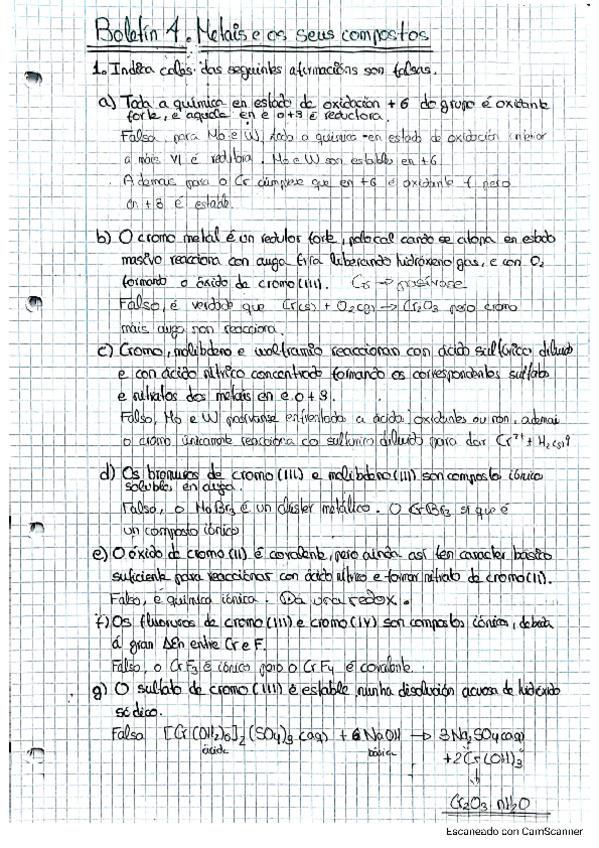 Boletín 4. Metais e os seus compostos
1. Indica cales das seguintes afirmacións son falsas.
a) Toda a química en estado de oxidación +6 do grupo é oxidante
forte, e aquela en e o +3 é redutora.
Falsa, para Mo e W, toda a química en estado de oxidación inferior
a máis VI é redutora. Mo e W son estables en +6.
Ademais para o Cr cúmprese que en +6 é oxidante f pero
en +3 é estable.
b) O cromo metal é un redutor forte, polo cal cando se atopa en estado
masivo reacciona con auga fría liberando hidróxeno gas, e con O2
formando o óxido de cromo(III). Cr → pasívase
Falso, é verdade que Cr(s) + O2(g) → Cr2O3 pero cromo
máis auga non reacciona.
c) Cromo, molibdeno e wolframio reaccionan con ácido sulfúrico diluído
e con ácido nítrico concentrado formando os correspondentes sulfatos
e nitratos dos metais en e o +3.
Falso, Mo e W pasívanse enfrentado a ácidos oxidantes ou non, ademais
o cromo únicamente reacciona co sulfúrico diluído para dar Cr2+ + H2(g)
d) Os bromuros de cromo(III) e molibdeno(III) son compostos iónicos
solubles en auga.
Falso, o MoBr3 é un clúster metálico. O CrBr3 si que é
un composto iónico
e) O óxido de cromo(II) é covalente, pero aínda así ten caracter básico
suficiente para reaccionar con ácido nítrico e formar nitrato de cromo(II).
Falso, é química iónica. Da una redox.
f) Os fluoruros de cromo(III) e cromo(IV) son compostos iónicos, debido
á gran ΔEn entre Cr e F.
Falso, o CrF3 é iónico pero o CrF4 é covalente.
g) O sulfato de cromo(III) é estable nunha disolución acuosa de hidróxido
sódico.
Falso [Cr(OH2)6]2(SO4)3(aq) + 6NaOH → 3Na2SO4(aq)
ácida básica +2Cr(OH)3
↓
Cr2O3 nH2O
Escaneado con CamScanner